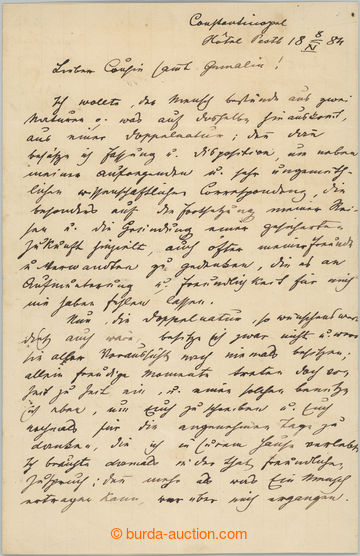 Constantinopel
Hôtel Pesth 18 8/XI 84
Lieber Cousin samt Gemalin!
Ich wollte, der Mensch bestünde aus zwei
Naturen o. was auf dasselbe hinauskomt,
aus einer Doppelnatur; den dan
besäße ich Fassung u. Disposition, um neben
meiner aufregenden u. sehr ungemüth-
lichen wissenschaftlichen Correspondenz, die
besonders auf die Fortsetzung meiner Rei-
sen u. die Gründung einer gesicherten
Zukunft hinzielt, auch öfter meiner Freunde
u. Verwandten zu gedenken, die es an
Aufmunterung u. Freundlichkeit für mich
nie haben fehlen lassen.
Nun, die Doppelnatur, so wünschenswert
auch wäre, besitze ich zwar nicht u. werde
sie aller Voraussicht nach niemals besitzen;
allein freudige Momente treten doch von
Zeit zu Zeit ein, u. einen solchen benütze
ich eben, um Euch zu schreiben u. Euch
nochmals für die angenehmen Tage zu
danken, die ich in Eurem Hause verlebte.
Ich brauchte damals in der That freundlichen
Zuspruch; den mehr als was Ein Mensch
ertragen kann, war über mich ergangen.
burda-auction.com